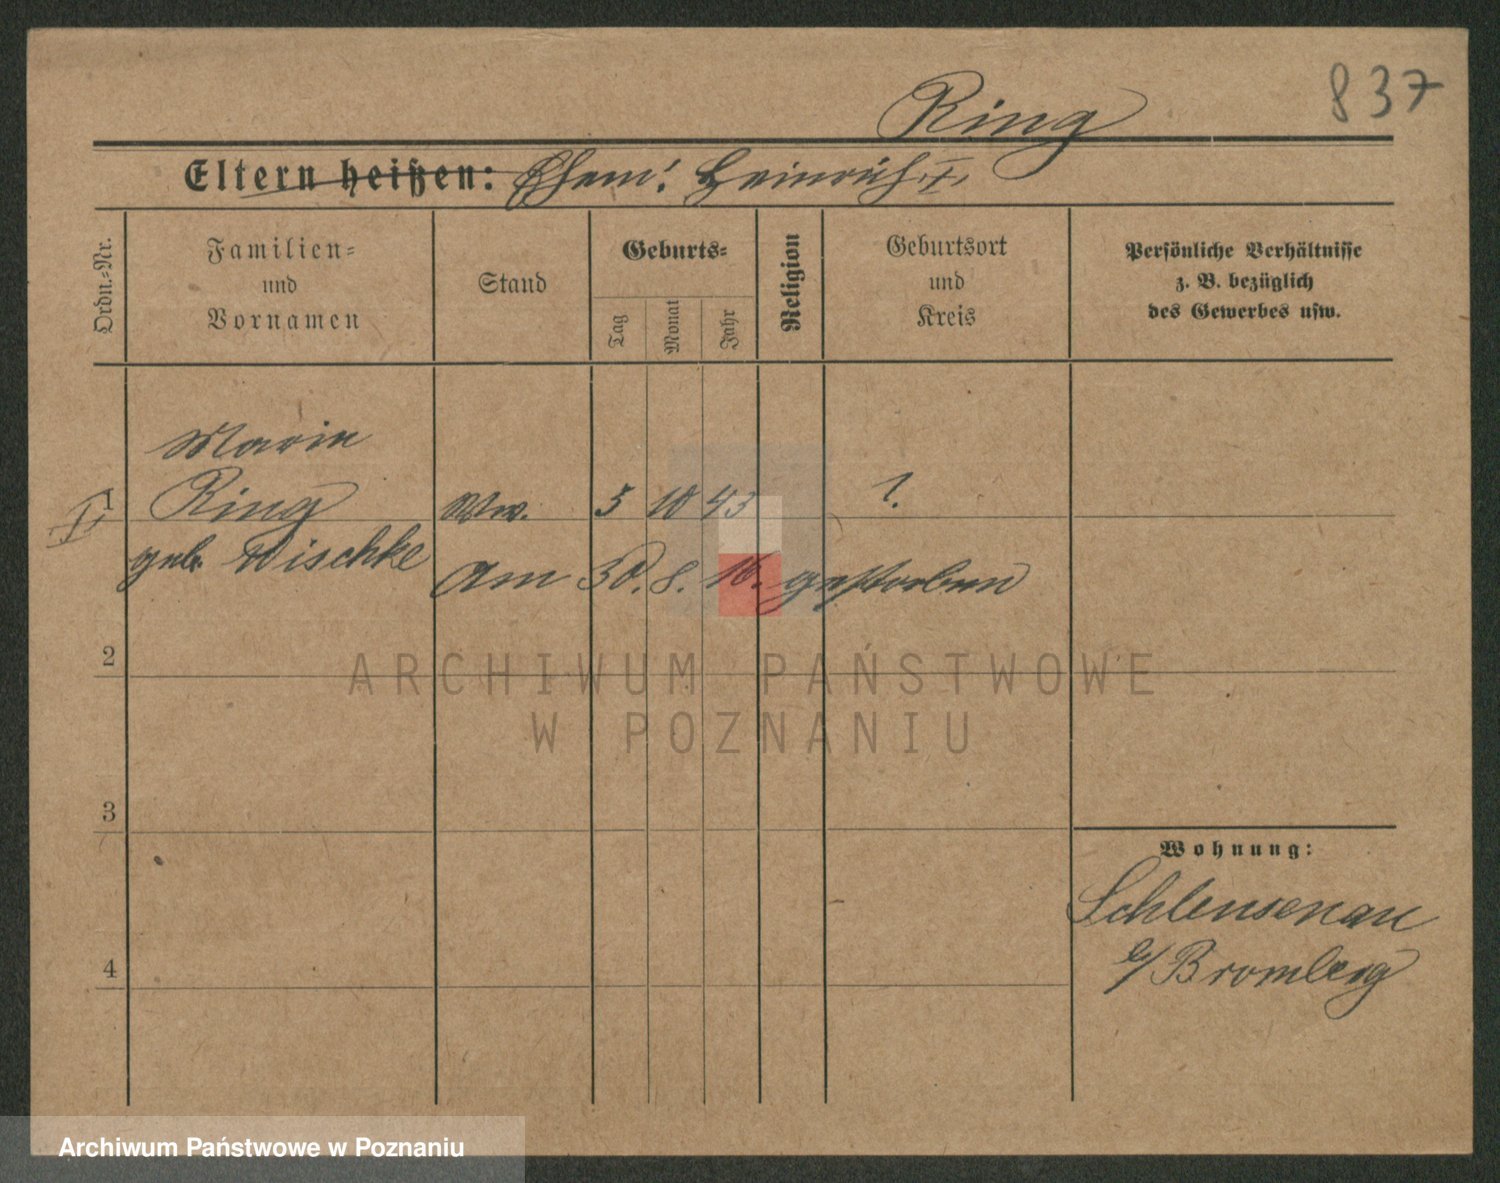 837
Ring
Eltern heißen: Ehem: Heinrich I.
Ordn.-Nr.
Familien-
und
Vornamen
Stand
Geburts-
Tag
Monat
Jahr
Religion
Geburtsort
und
Kreis
Persönliche Verhältnisse
z. B. bezüglich
des Gewerbes usw.
Marie
1 Ring Ww. 5 10 43 ?
geb. Wischke
Am 30. 8. 16. gestorben
2
3
4
Wohnung:
Schleusenau
b/Bromberg
ARCHIWUM PAŃSTWOWE
W POZNANIU
Archiwum Państwowe w Poznaniu